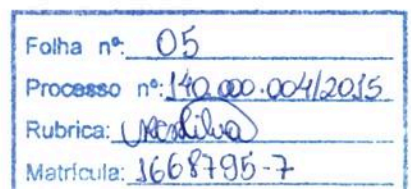 Folha nº: 05
Processo nº: 140.000.004/2015
Rubrica:
Matrícula: 1668795-7